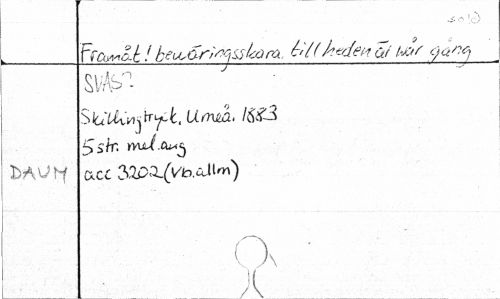 Framåt! bewäringsskara. till heden är wår gång
SVAS?
Skillingtryck. Umeå. 1883
5 str. mel.ang
DAUM acc 3202 (vb.allm)